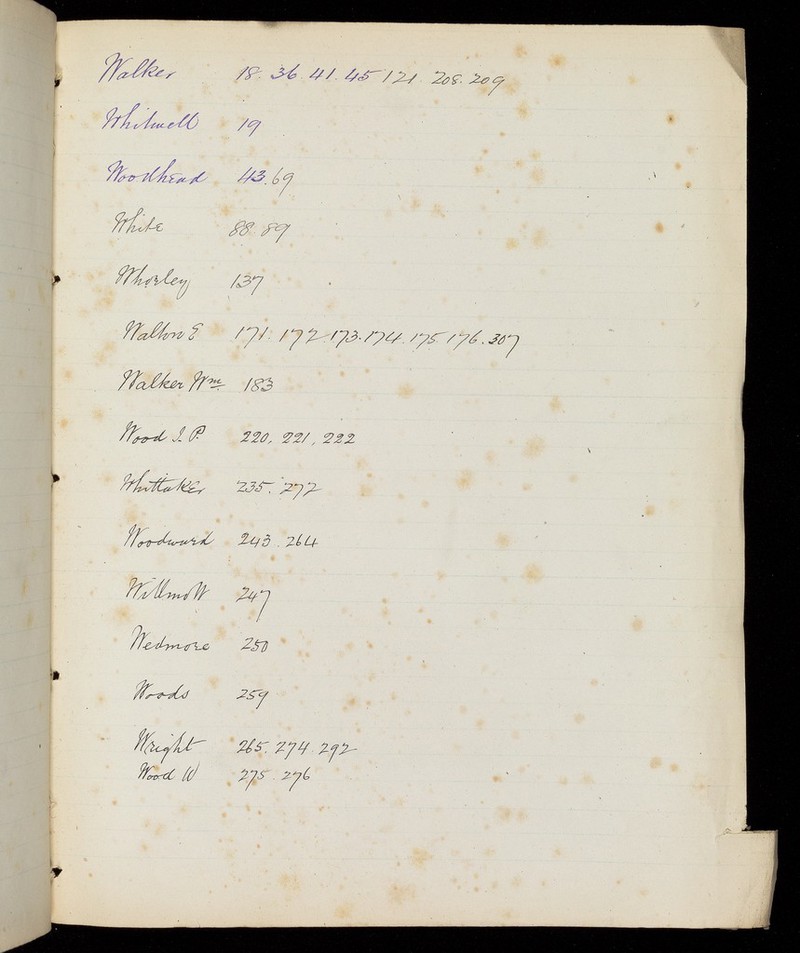 Walker 18. 36. 41. 45 121. 208. 209
Whitwell 19
Woodhead 43. 69
White 88. 89
Whorley 137
Walton E 171. 172 173. 174. 175. 176. 307
Walker Wm. 183
Wood I. P. 220, 221, 222
Whittaker 235. 272
Woodward 243. 264
Willmott 247
Wedmore 250
Woods 259
Wright 265. 274. 292
Wood W 275. 276